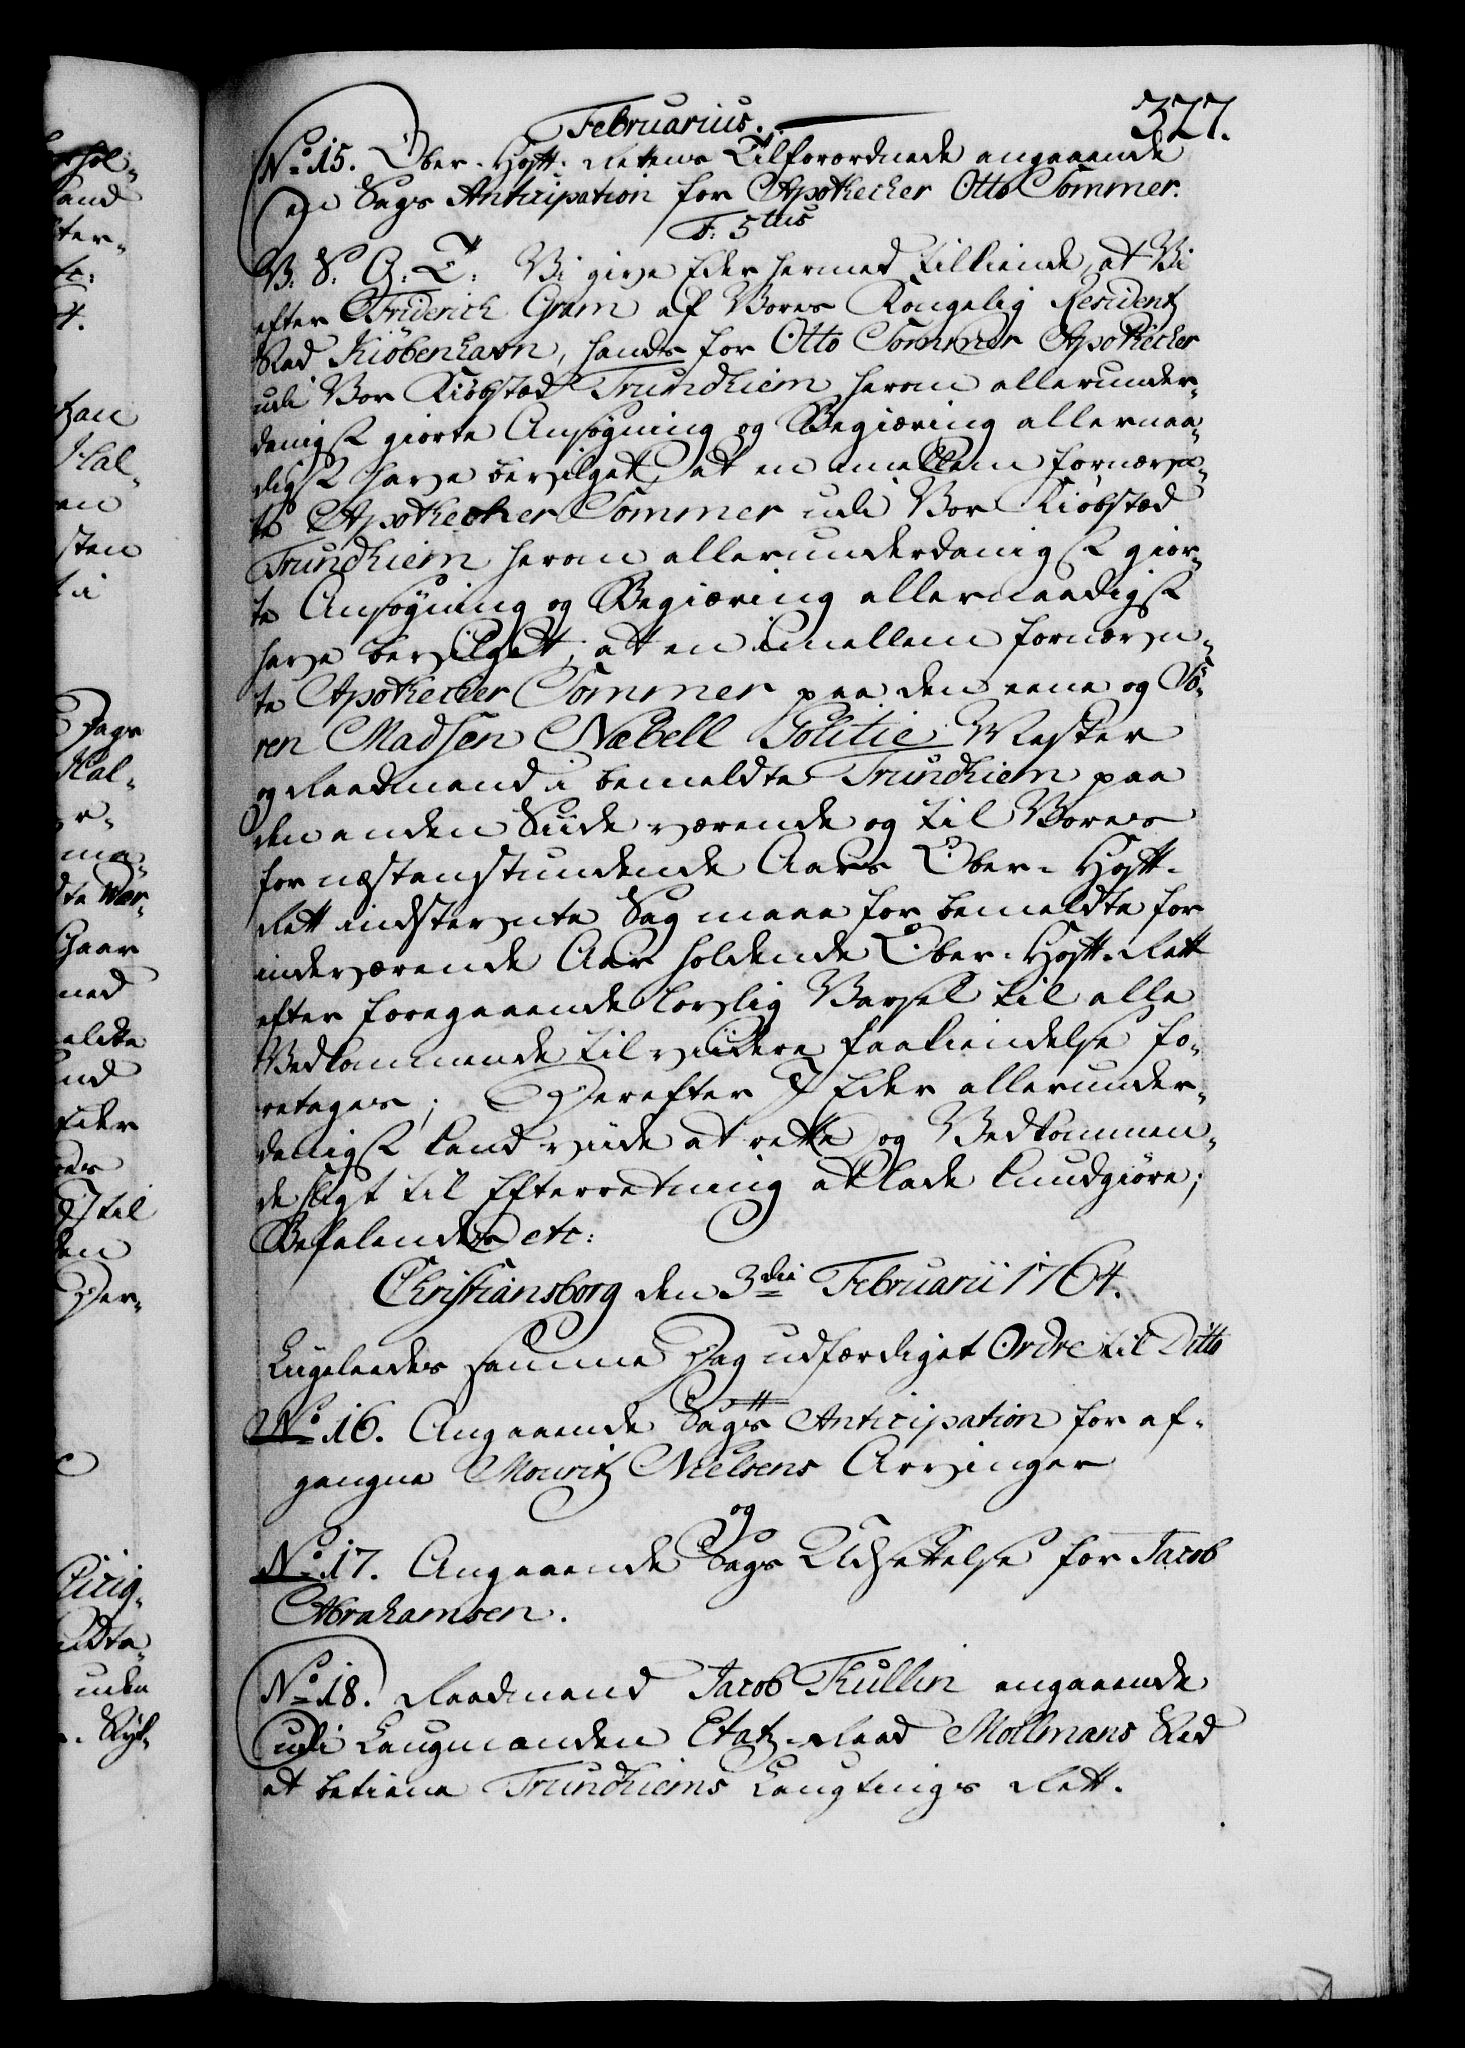 Februarius. 327.
No 15. Ober-Hoff-Rettens Tilforordnede angaaende
en Sags Anticipation for Apothecher Otto Sommer.
F. 5tus
V. S. G. T. Vi give Eder hermed tilkiende, at Vi
efter Friderich Gram af Vores Kongelig Residentz
Stad Kiöbenhavn, hands for Otto Sommer Apothecher
udi Vor Kiöbstæd Trundhiem herom allerunder-
danigst giorte Ansøgning og Begiæring allernaa-
digst have bevilget, at en imellem fornævn-
te Apothecher Sommer udi Vor Kiöbstæd
Trundhiem herom allerunderdanigst gior-
te Ansøgning og Begiæring allernaadigst
have bevilget, at en imellem fornævn-
te Apothecher Sommer paa den eene og Sö-
ren Madsen Næbell Politie-Mester
og Raadmand i bemeldte Trundhiem paa
den anden Siide værende og til Vores
for næstanstundende Aars Ober-Hoff-
Rett indstevnte Sag maae for bemeldte for
indeværende Aar holdende Ober-Hoff-Rett
efter foregaaende lovlig Varsel til alle
Vedkommende til viidere Paakiendelse fo-
retages; Derefter I Eder allerunder-
danigst land viide at rette og Vedkommen-
de sligt til Efterretning at lade kundgiöre;
Befalendes etc:
Christiansborg den 3die Februarii 1764.
Ligeleedes samme Dag udfærdiget Ordre til Ditto
No 16. Angaaende Sags Anticipation for af-
gangne Mouritz Nielsens Arvinger
og
No 17. Angaaende Sags Udsettelse for Jacob
Abrahamsen.
No 18. Raadmand Jacob Hullin angaaende
udi Laugmanden Etatz-Raad Möllmans Sted
at betiene Trundhiems Laugtings Rett.